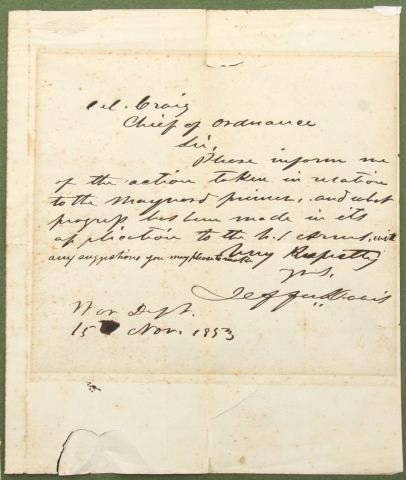 Col. Craig
Chief of Ordnance
Sir,
Please inform me
of the action taken in relation
to the Maynard primer, and what
progress has been made in its
application to the U.S. Arms, with
any suggestions you may have to make
Very Respectfly
Yrs,
Jeffn Davis
War Dept.
15 Nov. 1853